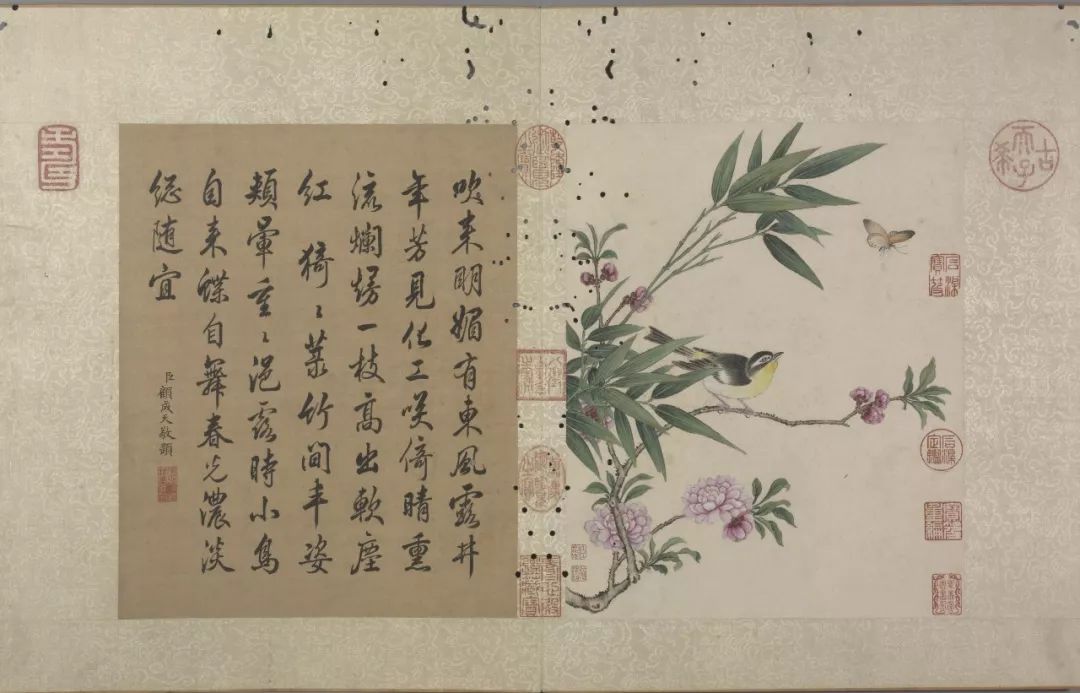 古希天子
石渠寶笈
吹来明媚有東風露井
年芳見化工咲倚晴熏
流爛熳一枝高出軟塵
紅 猗〻菉竹間丰姿
頰暈重〻浥露時小鳥
自来蝶自舞春光濃淡
緫随宜
臣顧成天敬題